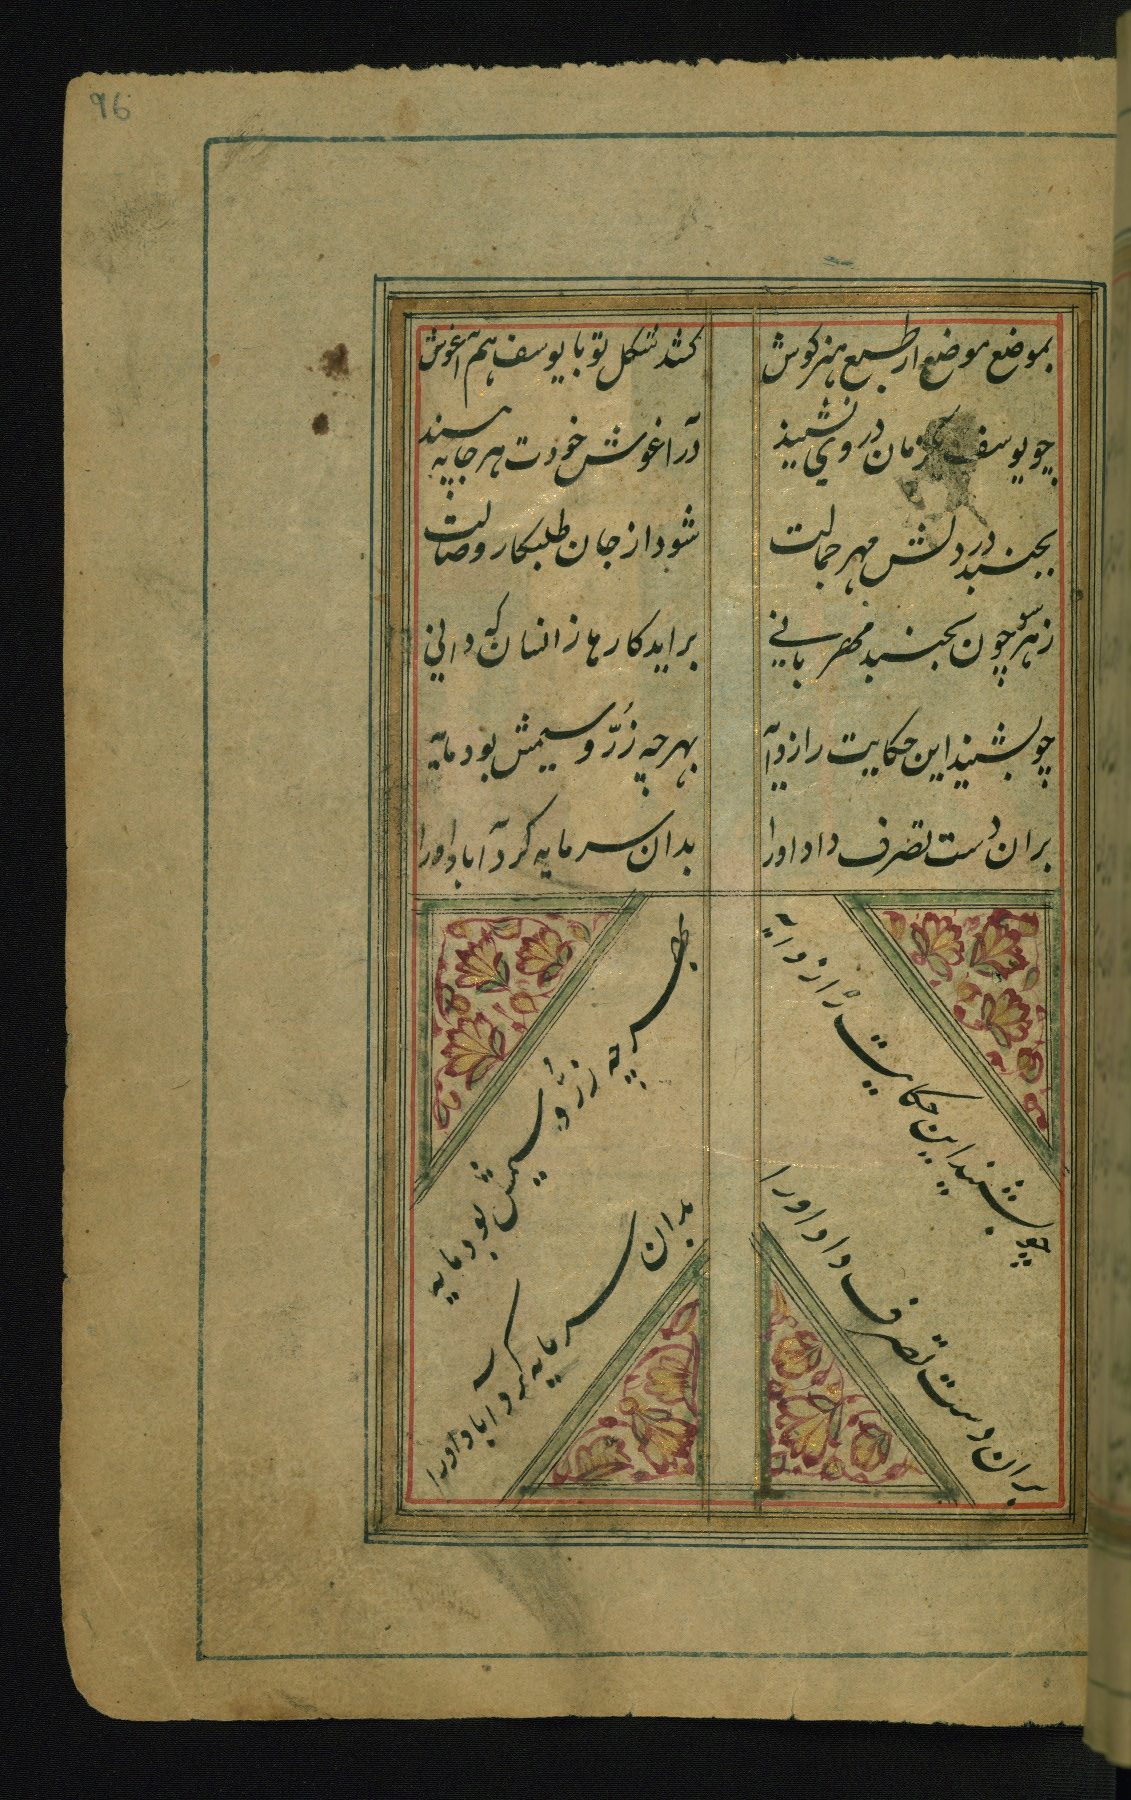 96
بموضع موضع از طبع هنرکوش کشد شکل تو با یوسف هم آغوش
چو یوسف یکزمان در وی نشیند در آغوش خودت هر جا به بیند
بجنبد در دلش مهر جمالت شود از جان طلبکار وصالت
ز هر سو چون بجنبد مهربانی براید کارها ز انسان که دانی
چو بشنید این حکایت را ز دایه بهرچه زرّ و سیمش بود مایه
بران دست تصرف داد او را بدان سرمایه کرد آباد او را
چو بشنید این حکایت را ز دایه بهرچه زرّ و سیمش بود مایه
بران دست تصرف داد او را بدان سرمایه کرد آباد او را